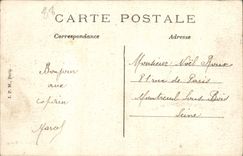 CARTE POSTALE
Correspondance
Adresse
Bonjour
aux
copains
Marcel
Monsieur Noël Roux
81 rue de Paris
Montreuil Sous Bois
Seine